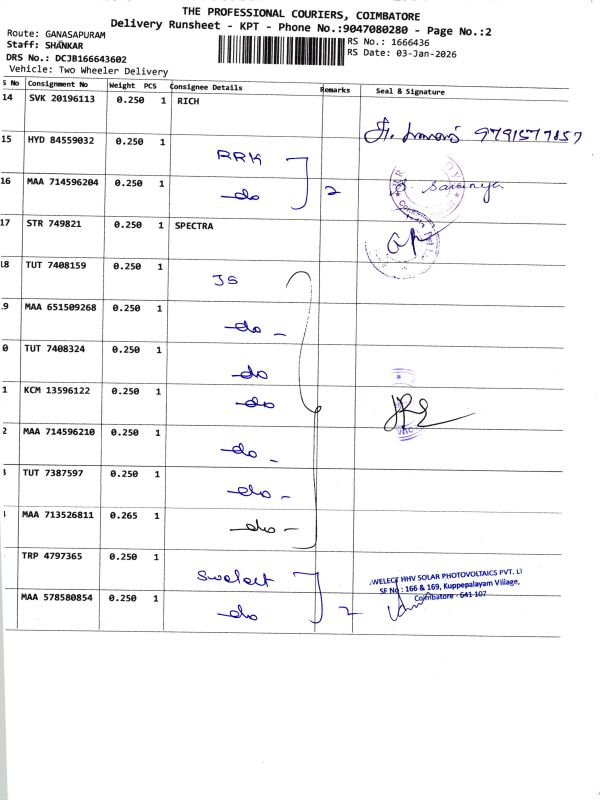 THE PROFESSIONAL COURIERS, COIMBATORE
Delivery Runsheet - KPT - Phone No.:9047080280 - Page No.:2
Route: GANASAPURAM
Staff: SHANKAR
DRS No.: DCJB166643602
Vehicle: Two Wheeler Delivery
RS No.: 1666436
RS Date: 03-Jan-2026
S No Consignment No Weight PCS Consignee Details Remarks Seal & Signature
14 SVK 20196113 0.250 1 RICH
9791577157
15 HYD 84559032 0.250 1 RRK
16 MAA 714596204 0.250 1 do 2 Saranya
17 STR 749821 0.250 1 SPECTRA
18 TUT 7408159 0.250 1 JS
9 MAA 651509268 0.250 1 do -
0 TUT 7408324 0.250 1 do
1 KCM 13596122 0.250 1 do
2 MAA 714596210 0.250 1 do -
TUT 7387597 0.250 1 do -
MAA 713526811 0.265 1 do -
TRP 4797365 0.250 1 Swelect
SWELECT HHV SOLAR PHOTOVOLTAICS PVT. LT
SF No : 166 & 169, Kuppepalayam Village,
Coimbatore - 641 107
MAA 578580854 0.250 1 do 2